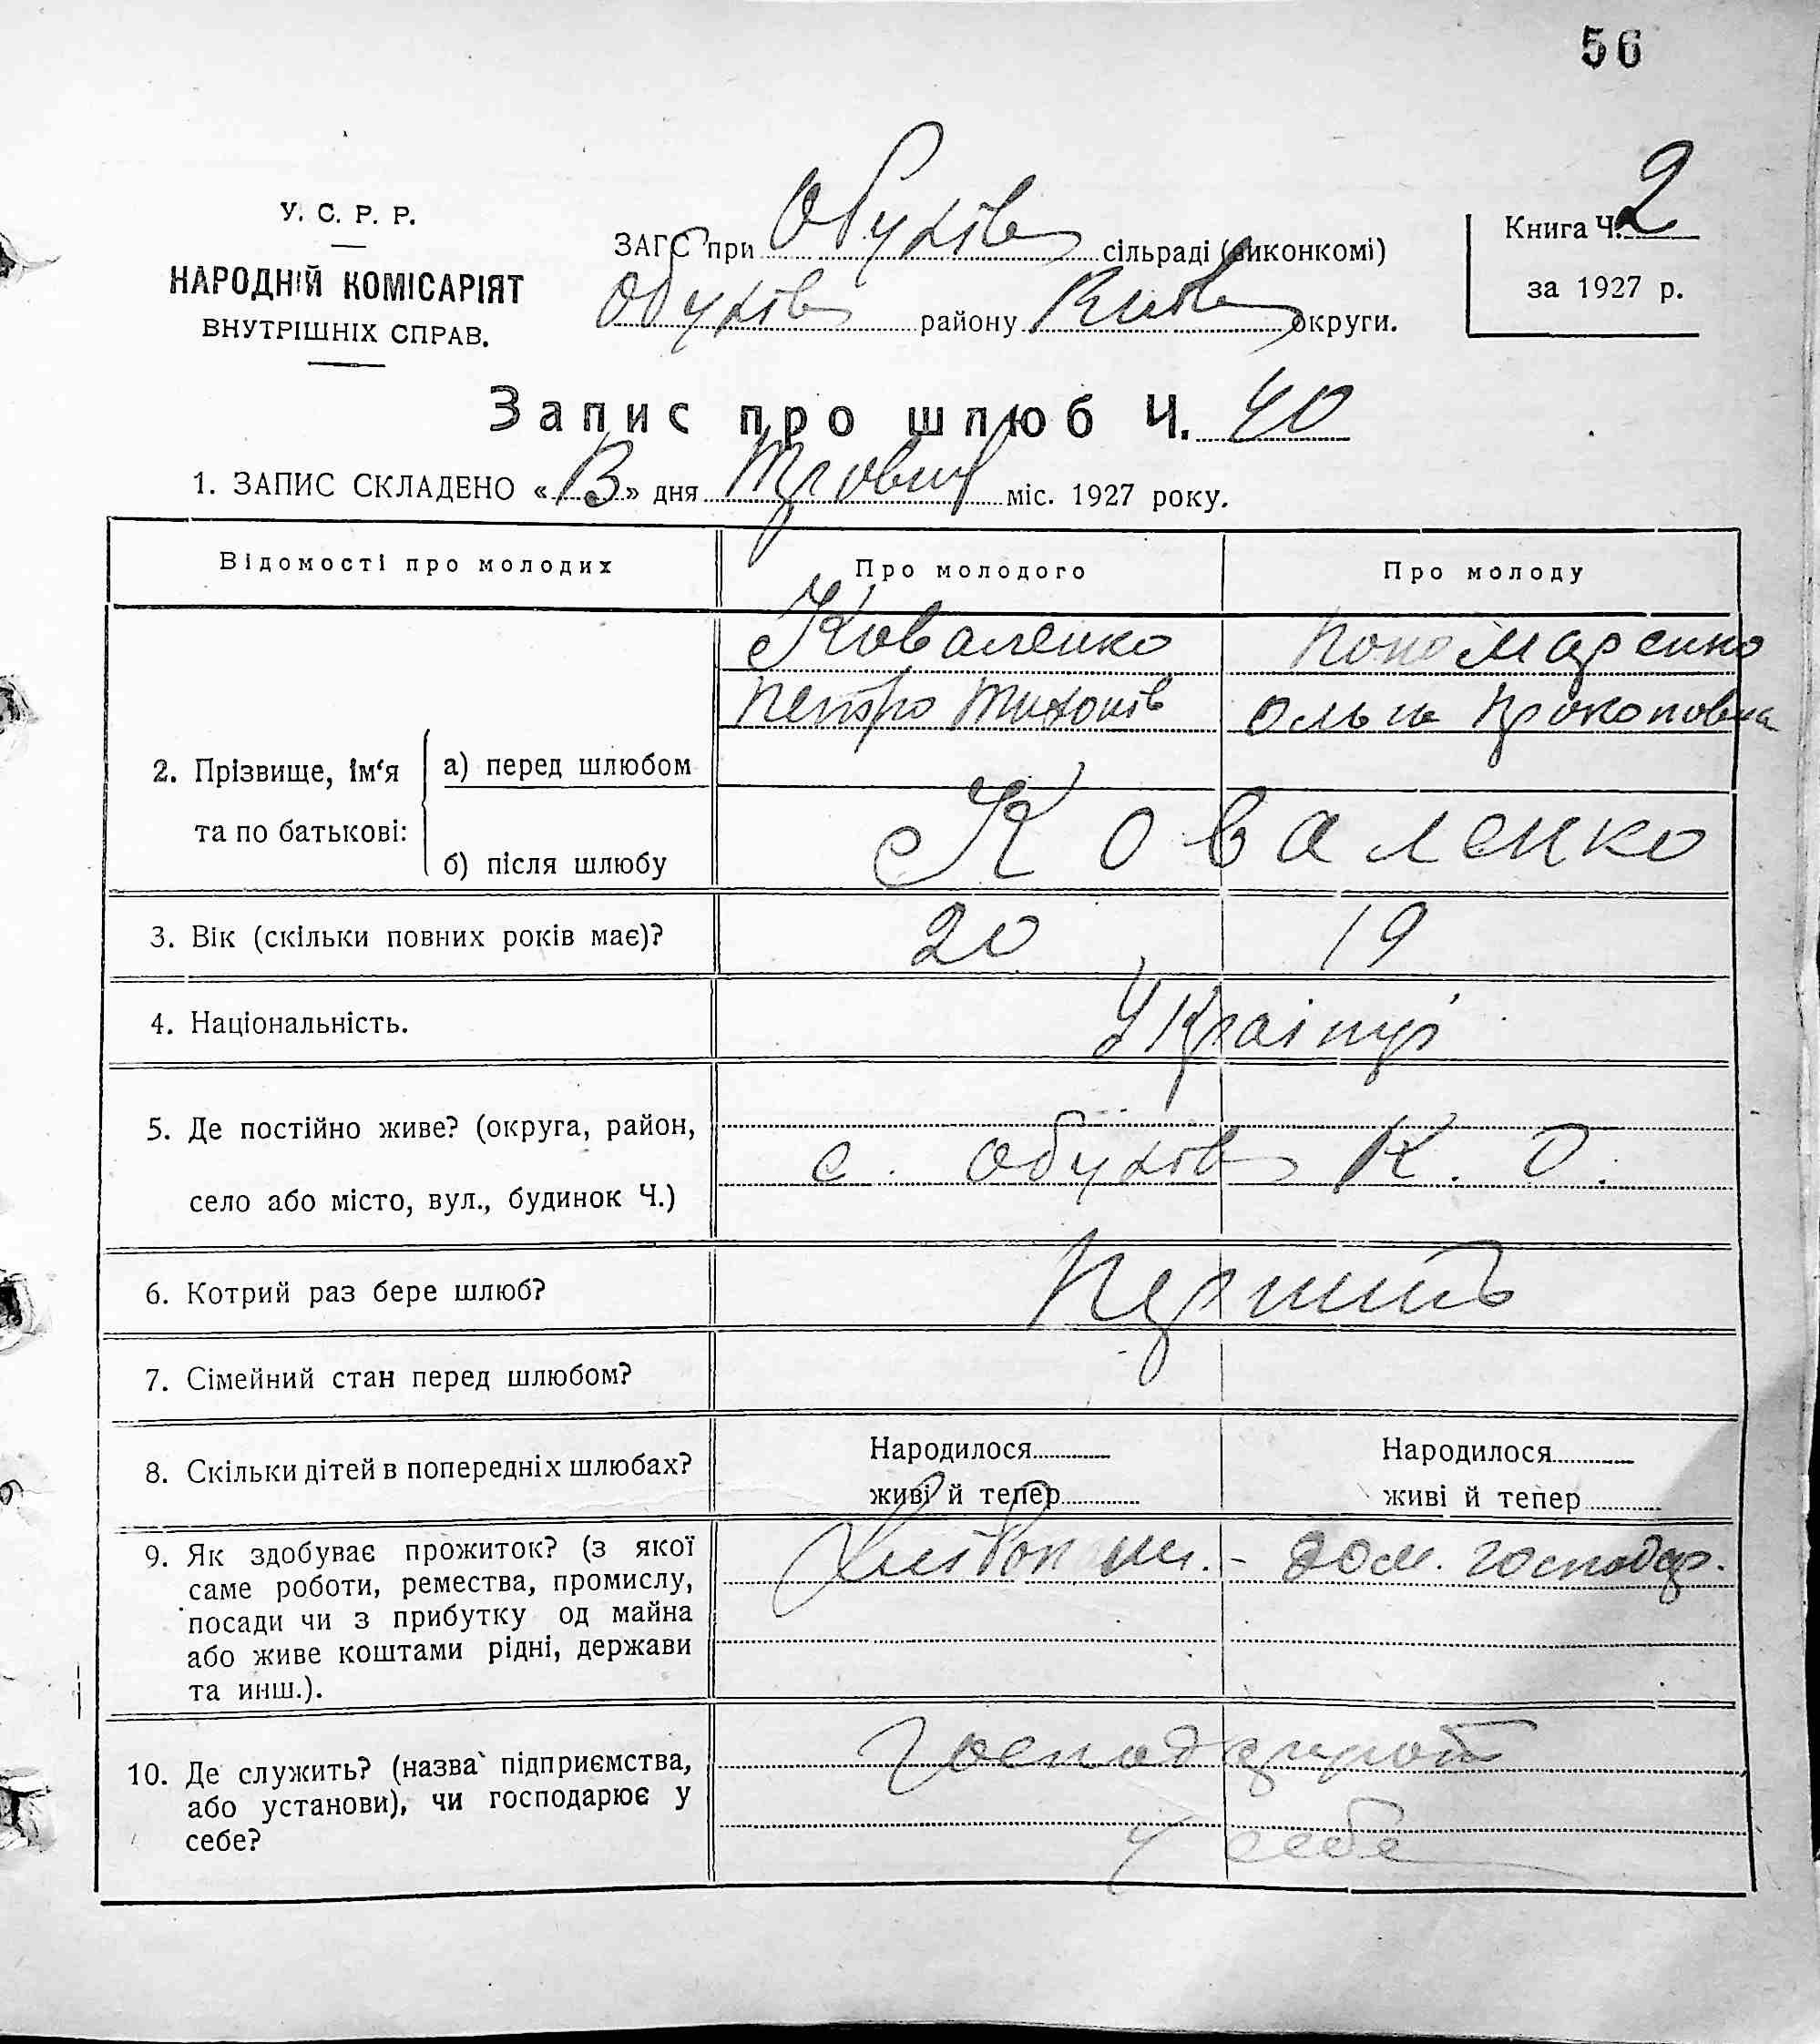 56
У. С. Р. Р.
НАРОДНІЙ КОМІСАРІЯТ
ВНУТРІШНІХ СПРАВ.
ЗАГС при Обухів сільраді (виконкомі)
Обухів району Київ округи.
Книга Ч. 2
за 1927 р.
Запис про шлюб Ч. 40
1. ЗАПИС СКЛАДЕНО «13» дня Травня міс. 1927 року.
Відомості про молодих Про молодого Про молоду
Коваленко Пономаренко
Петро Тихонів Ольга Прокоповна
2. Прізвище, ім‘я а) перед шлюбом
та по батькові:
б) після шлюбу Коваленко
3. Вік (скільки повних років має)? 20 19
4. Національність. Українці
5. Де постійно живе? (округа, район,
село або місто, вул., будинок Ч.) с. Обухів К. О.
6. Котрий раз бере шлюб?
7. Сімейний стан перед шлюбом?
8. Скільки дітей в попередніх шлюбах? Народилося Народилося
живі й тепер живі й тепер
9. Як здобуває прожиток? (з якої дом. господар.
саме роботи, ремества, промислу,
посади чи з прибутку од майна
або живе коштами рідні, держави
та инш.).
10. Де служить? (назва підприємства,
або установи), чи господарює у
себе? у себе